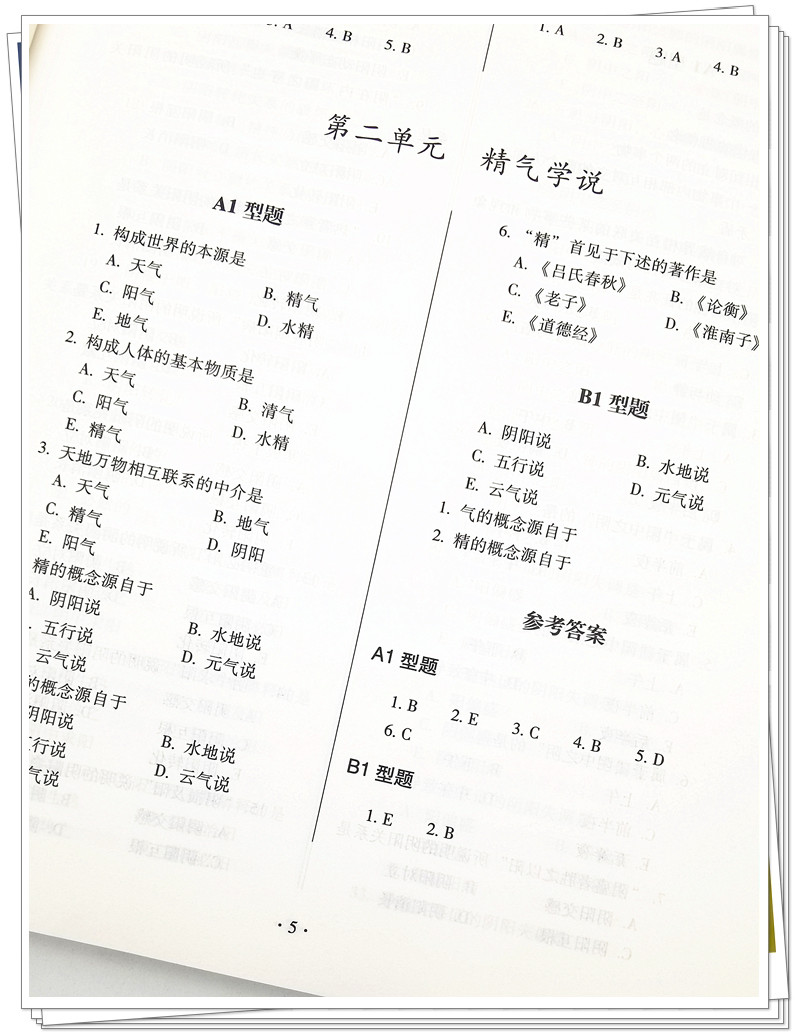 3. A 4. B 5. B
1. A 2. B 3. A 4. B
第二单元 精气学说
A1 型题
1. 构成世界的本源是
A. 天气 B. 精气
C. 阳气 D. 水精
E. 地气
2. 构成人体的基本物质是
A. 天气 B. 清气
C. 阳气 D. 水精
E. 精气
3. 天地万物相互联系的中介是
A. 天气 B. 地气
C. 精气 D. 阴阳
E. 阳气
精的概念源自于
A. 阴阳说 B. 水地说
五行说 D. 元气说
云气说
的概念源自于
阴阳说 B. 水地说
行说 D. 云气说
气说
6. “精”首见于下述的著作是
A. 《吕氏春秋》 B. 《论衡》
C. 《老子》 D. 《淮南子》
E. 《道德经》
B1 型题
A. 阴阳说 B. 水地说
C. 五行说 D. 元气说
E. 云气说
1. 气的概念源自于
2. 精的概念源自于
参考答案
A1 型题
1. B 2. E 3. C 4. B 5. D
6. C
B1 型题
1. E 2. B
· 5 ·